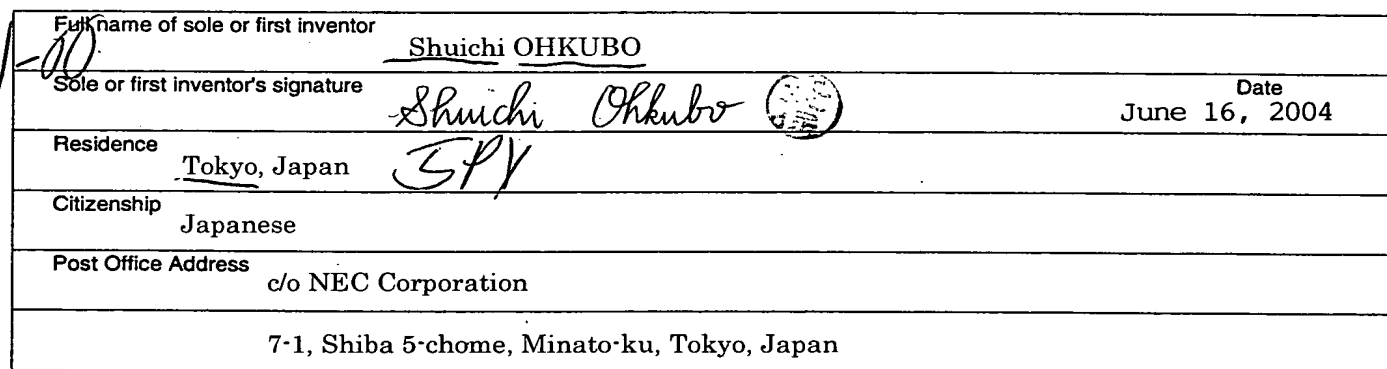 1-00
Full name of sole or first inventor
Shuichi OHKUBO
Sole or first inventor's signature
Shuichi Ohkubo
Date
June 16, 2004
Residence
Tokyo, Japan JPY
Citizenship
Japanese
Post Office Address
c/o NEC Corporation
7-1, Shiba 5-chome, Minato-ku, Tokyo, Japan